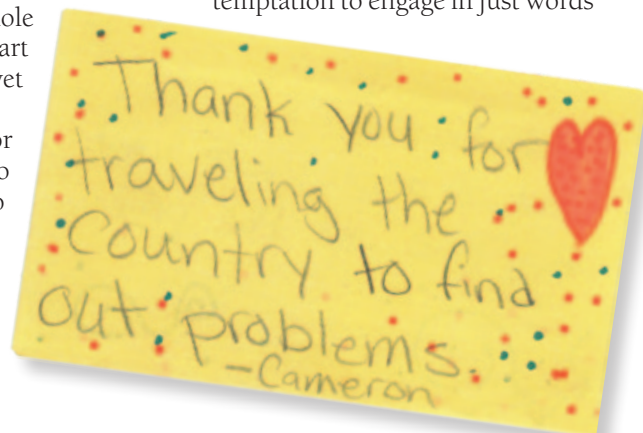 temptation to engage in just words
Thank you for
traveling the
Country to find
out problems.
-Cameron